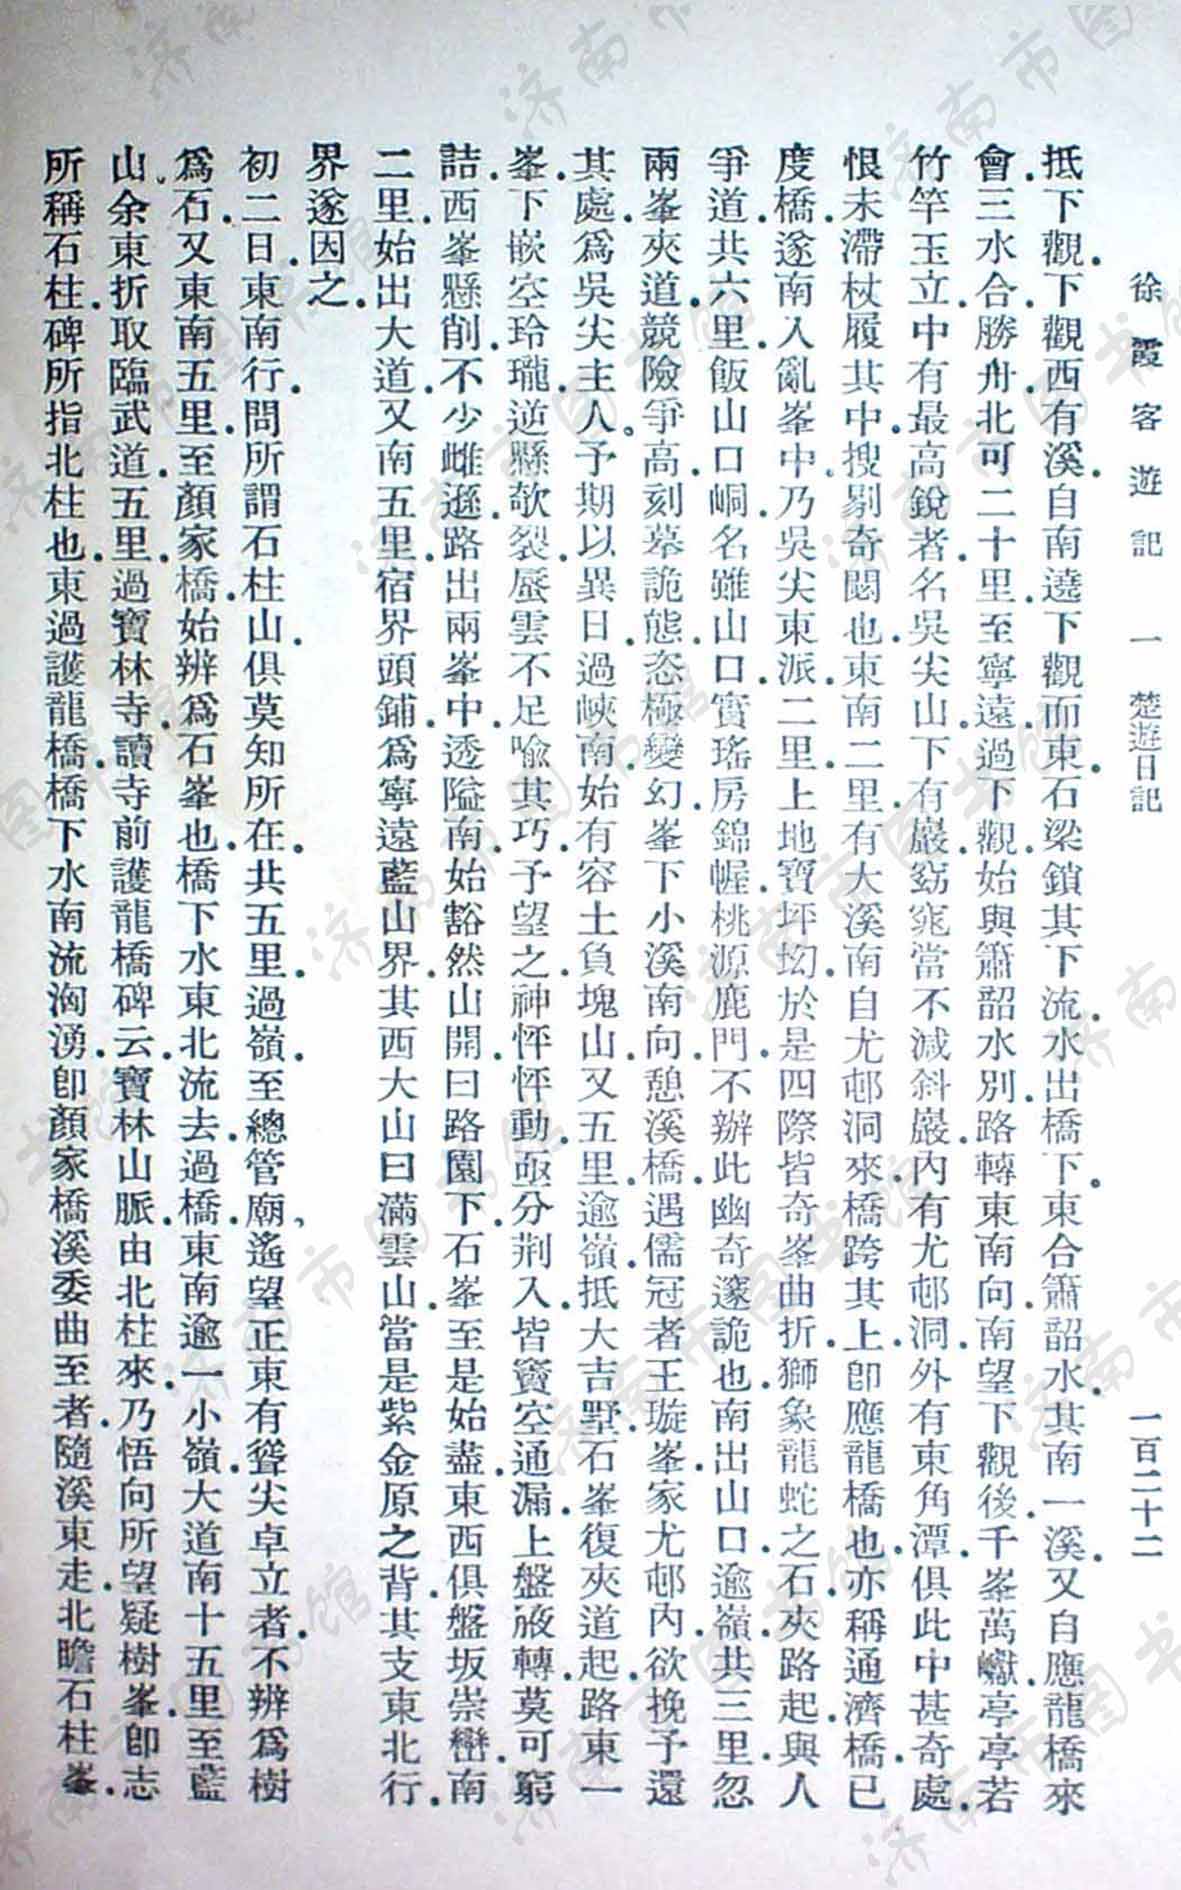 徐霞客遊記 一 楚遊日記 一百二十二
抵下觀.下觀西有溪.自南遶下觀而東.石梁鎖其下.流水出橋下.東合簫韶水.其南一溪.又自應龍橋來
會.三水合.勝舟.北可二十里至寧遠.過下觀.始與簫韶水別.路轉東南向.南望下觀後.千峯萬巘.亭亭若
竹竿玉立.中有最高銳者.名吳尖山.下有巖.窈窕當不減斜巖.內有尤邨洞.外有東角潭.俱此中甚奇處.
恨未滯杖履其中.搜剔奇閟也.東南二里.有大溪南自尤邨洞來.橋跨其上.卽應龍橋也.亦稱通濟橋.已
度橋.遂南入亂峯中.乃吳尖東派.二里.上地寶坪坳.於是四際皆奇峯曲折.獅象龍蛇之石.夾路起.與人
爭道.共六里飯山口峒.名雖山口.實瑤房錦幄.桃源鹿門.不辦此幽奇邃詭也.南出山口.逾嶺.共三里.忽
兩峯夾道.競險爭高.刻募詭態.恣極變幻.峯下小溪南向.憩溪橋.遇儒冠者王璇峯.家尤邨內.欲挽予還
其處.爲吳尖主人.予期以異日.過峽南.始有容土負塊山.又五里.逾嶺.抵大吉墅.石峯復夾道起.路東一
峯.下嵌空玲瓏.逆懸欹裂.蜃雲不足喩其巧.予望之神怦怦動.亟分荆入.皆竇空通漏.上盤淤轉.莫可窮
詰.西峯懸削.不少雌遜.路出兩峯中.透隘南.始豁然山開.曰路園下.石峯至是始盡.東西俱盤坂崇巒.南
二里.始出大道.又南五里.宿界頭鋪.爲寧遠藍山界.其西大山曰滿雲山.當是紫金原之背.其支東北行.
界遂因之.
初二日.東南行.問所謂石柱山.俱莫知所在.共五里.過嶺.至總管廟.遙望正東有聳尖卓立者.不辨爲樹
爲石.又東南五里.至顏家橋.始辨爲石峯也.橋下水東北流去.過橋.東南逾一小嶺.大道南十五里.至藍
山.余東折取臨武道.五里.過寶林寺.讀寺前護龍橋碑云.寶林山脈.由北柱來.乃悟向所望疑樹峯.卽志
所稱石柱.碑所指北柱也.東過護龍橋.橋下水南流洶湧.卽顏家橋溪委曲至者.隨溪東走.北瞻石柱峯.